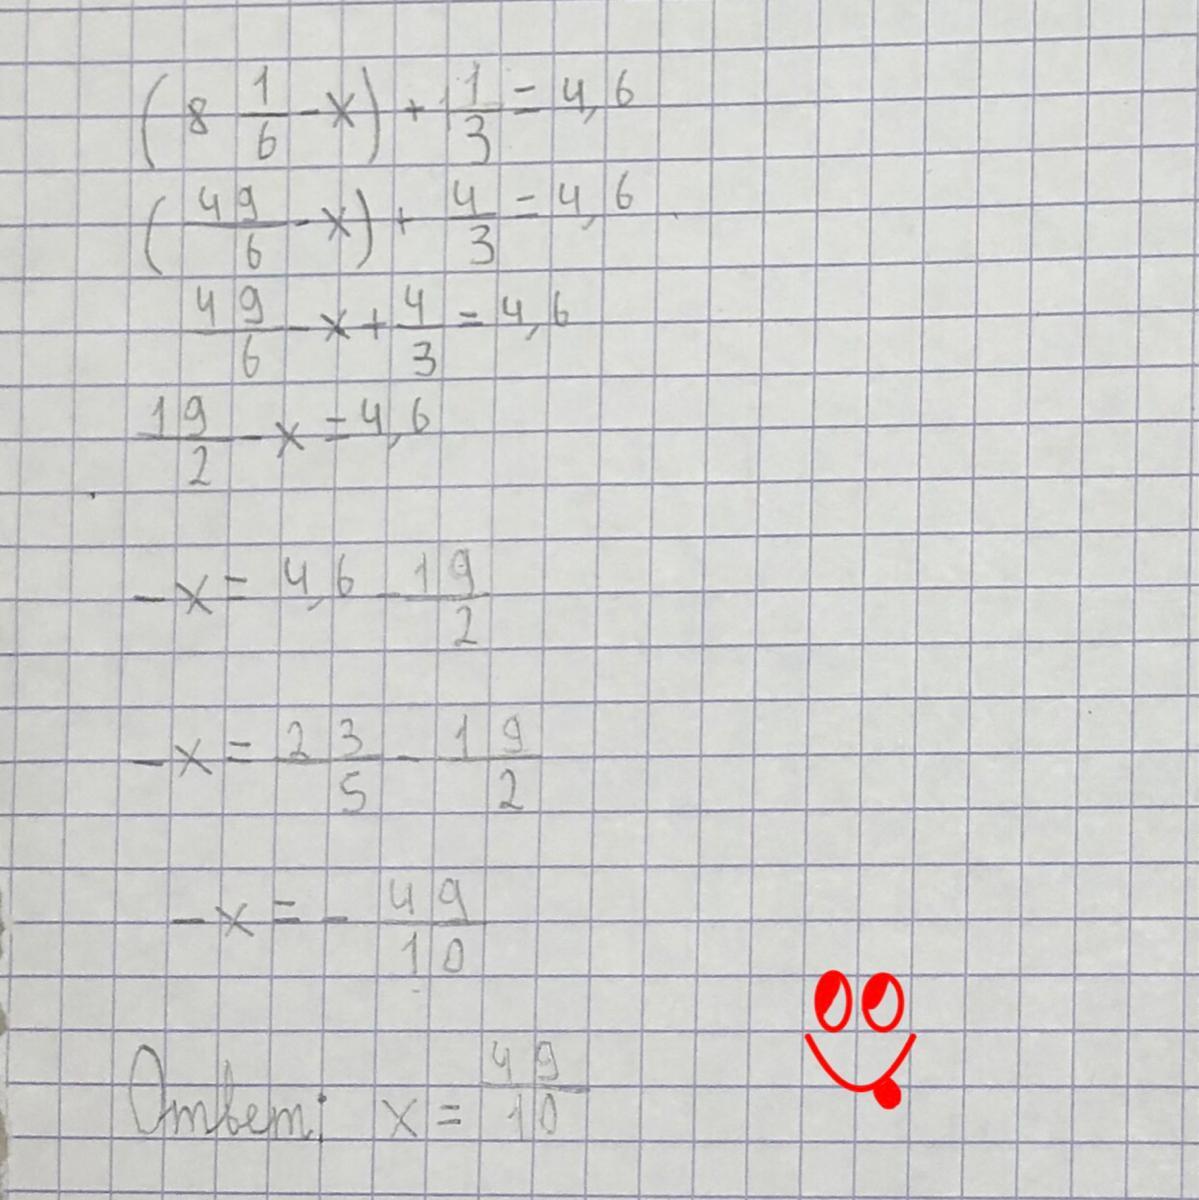 (8 1/6 - x) + 1 1/3 = 4,6
(49/6 - x) + 4/3 = 4,6
49/6 - x + 4/3 = 4,6
19/2 - x = 4,6
-x = 4,6 - 19/2
-x = 23/5 - 19/2
-x = - 49/10
Ответ: x = 49/10